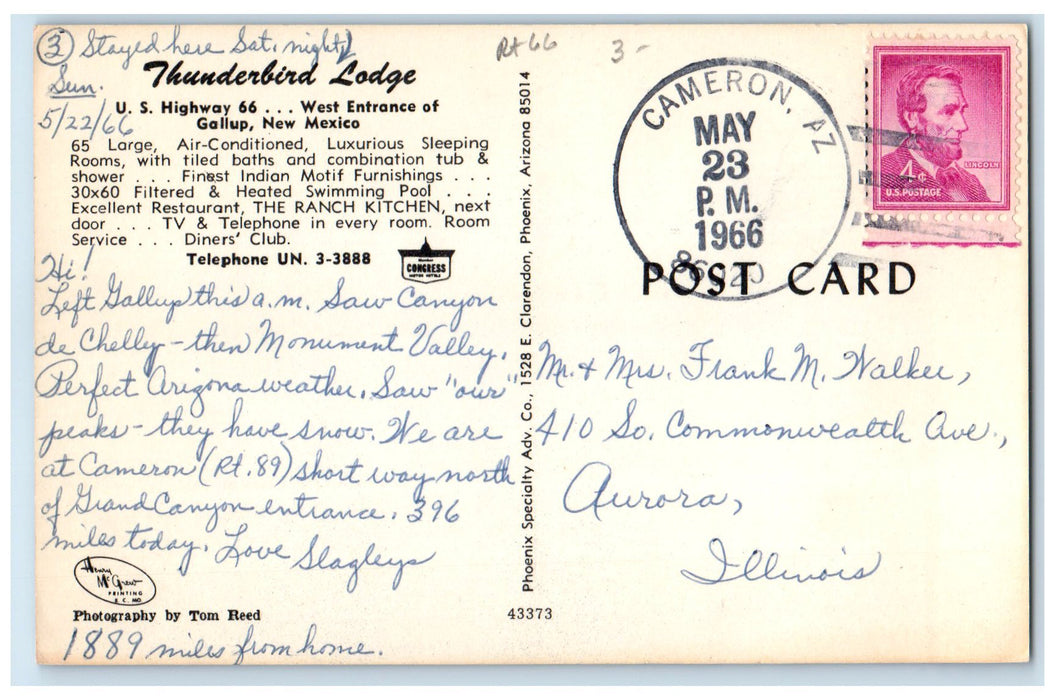 ③ Stayed here Sat. night,
Sun.
5/22/66
Rt 66
3-
Thunderbird Lodge
U. S. Highway 66 . . . West Entrance of
Gallup, New Mexico
65 Large, Air-Conditioned, Luxurious Sleeping
Rooms, with tiled baths and combination tub &
shower . . . Finest Indian Motif Furnishings . . .
30x60 Filtered & Heated Swimming Pool . . .
Excellent Restaurant, THE RANCH KITCHEN, next
door . . . TV & Telephone in every room. Room
Service . . . Diners' Club.
Telephone UN. 3-3888
CONGRESS
MOTOR HOTELS
Hi!
Left Gallup this a.m. Saw Canyon
de Chelly - then Monument Valley.
Perfect Arizona weather. Saw "our"
peaks - they have snow. We are
at Cameron (Rt. 89) short way north
of Grand Canyon entrance. 396
miles today. Love Slagleys
Henry
McGrew
PRINTING
K.C. MO
Photography by Tom Reed
1889 miles from home.
Phoenix Specialty Adv. Co., 1528 E. Clarendon, Phoenix, Arizona 85014
43373
CAMERON, AZ
MAY
23
P.M.
1966
86020
LINCOLN
4¢
U.S. POSTAGE
POST CARD
Mr. & Mrs. Frank M. Walker,
410 So. Commonwealth Ave.,
Aurora,
Illinois